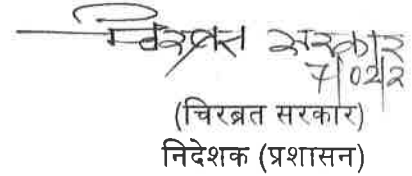 चिरब्रत सरकार
7/02/2
(चिरब्रत सरकार)
निदेशक (प्रशासन)